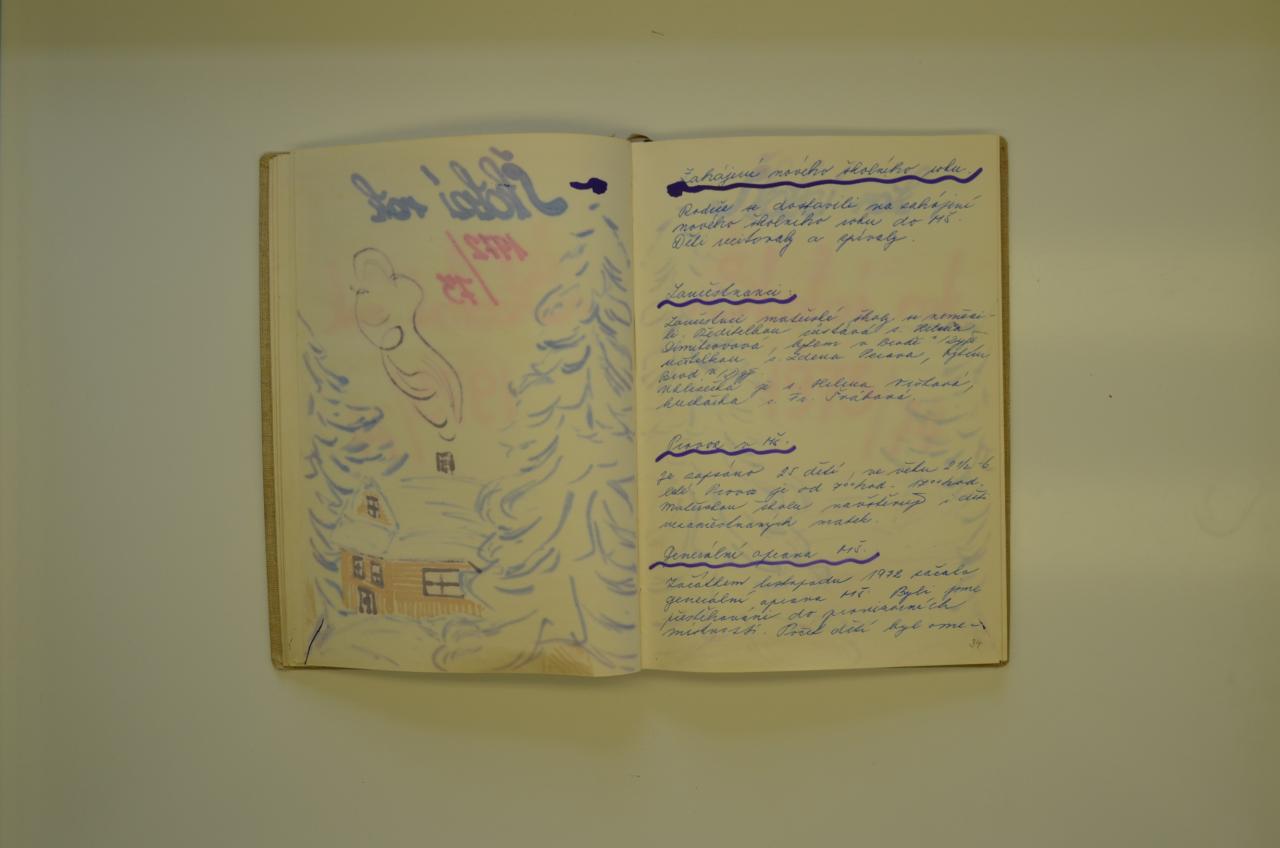 Školní rok
1972/73
Zahájení nového školního roku.
Rodiče se dostavili na zahájení
nového školního roku do MŠ
Děti recitovaly a zpívaly.
Zaměstnanci.
Zaměstnci mateřské školy se nezměni-
li. Ředitelkou zůstává s. Helena
Dimitrovová, bytem v Brodě
učitelkou, s. Zdena Pecova, bytem
Brod
je s. Helena
kuchařka s. Fr. Švábová.
Provoz v MŠ.
Je zapsáno 25 dětí, ve věku 2 1/2-6
let. Provoz je od hod. hod.
Mateřskou školu navštěvují i děti
nezaměstnaných matek.
Generální oprava MŠ.
Začátkem listopadu 1972 začala
generální oprava MŠ. Byli jsme
přestěhováni do provizorních
místností. Počet dětí byl ome-
34